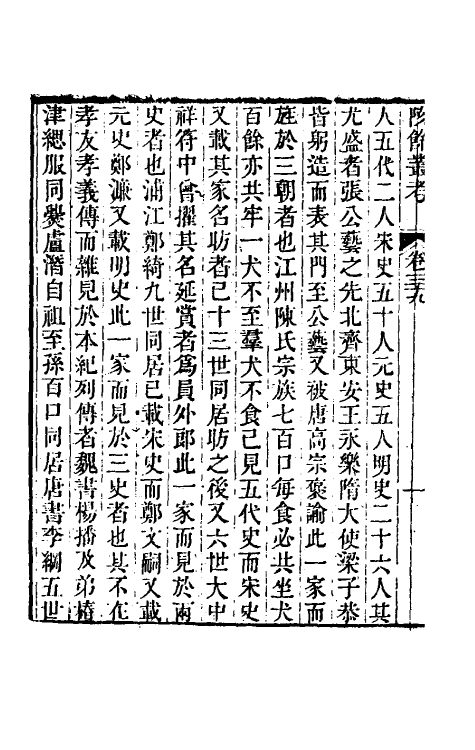 陔餘叢考 卷三十九 一
人五代二人宋史五十人元史五人明史二十六人其
尤盛者張公藝之先北齊東安王永樂隋大使梁子恭
皆躬造而表其門至公藝又被唐高宗褒諭此一家而
旌於三朝者也江州陳氏宗族七百口每食必共坐犬
百餘亦共牢一犬不至羣犬不食已見五代史而宋史
又載其家名昉者已十三世同居昉之後又六世大中
祥符中曾擢其名延賞者爲員外郎此一家而見於兩
史者也浦江鄭綺九世同居已載宋史而鄭文嗣又載
元史鄭濂又載明史此一家而見於三史者也其不在
孝友孝義傳而雜見於本紀列傳者魏書楊播及弟椿
津緦服同爨盧潛自祖至孫百口同居唐書李綱五世